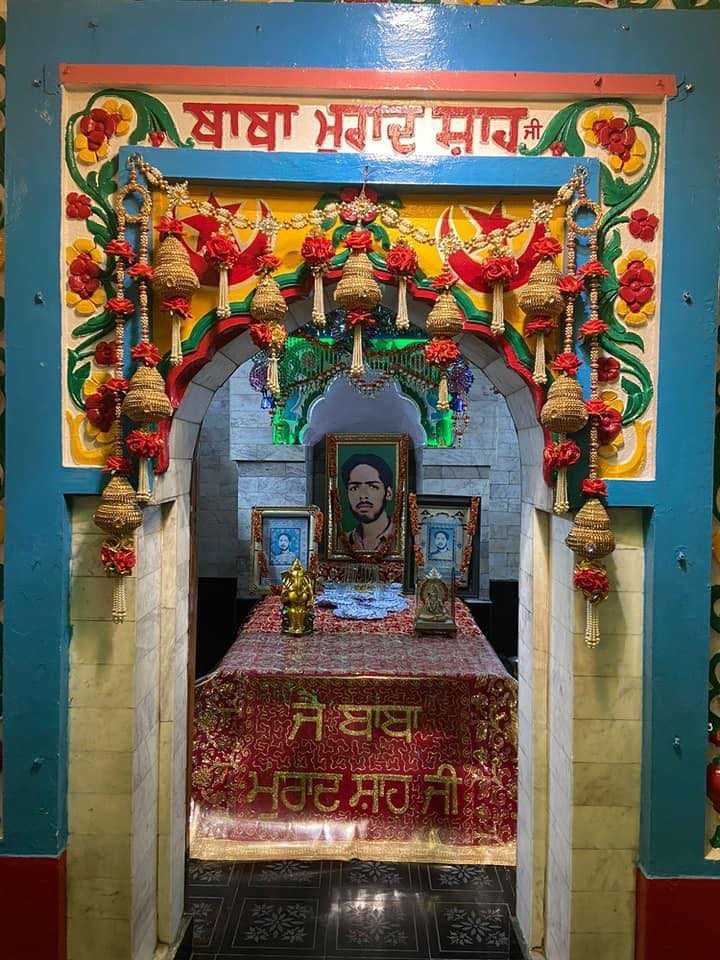 ਬਾਬਾ ਮੁਰਾਦ ਸ਼ਾਹ ਜੀ
ਜੈ ਬਾਬਾ
ਮੁਰਾਦ ਸ਼ਾਹ ਜੀ